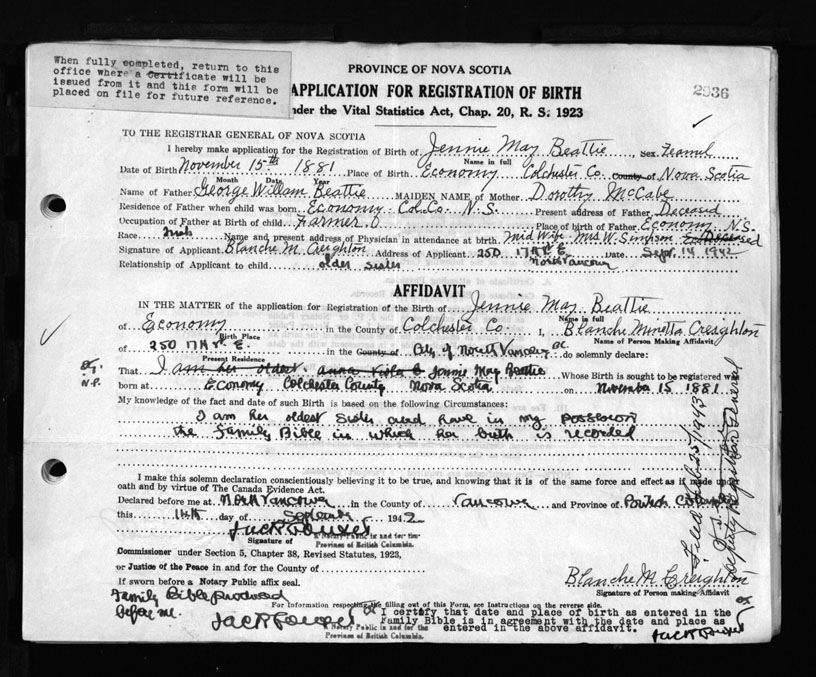 When fully completed, return to this
office where a Certificate will be
issued from it and this form will be
placed on file for future reference.
PROVINCE OF NOVA SCOTIA
APPLICATION FOR REGISTRATION OF BIRTH
2936
nder the Vital Statistics Act, Chap. 20, R. S. 1923
TO THE REGISTRAR GENERAL OF NOVA SCOTIA
I hereby make application for the Registration of Birth of Jennie May Beattie Sex
Name in full
Date of Birth November 15th 1881 Place of Birth Economy Colchester Co. County of Nova Scotia
Month Date Year
Name of Father George Beattie MAIDEN NAME of Mother Dorothy McCabe
Residence of Father when child was born Economy Col. Co. N.S. Present address of Father Deceased
Occupation of Father at Birth of child Farmer Place of birth of Father Economy N.S.
Race Irish Name and present address of Physician in attendance at birth Mid Wife Mrs W. Simpson
Signature of Applicant Blanche M. Creighton Address of Applicant 250 17th St. E. Date Sept. 14 1942
North Vancouver
Relationship of Applicant to child older sister
AFFIDAVIT
IN THE MATTER of the application for Registration of the Birth of Jennie May Beattie
Name in full
of Economy in the County of Colchester Co. I, Blanche Minetta Creighton
Birth Place Name of Person Making Affidavit
of 250 17th St. E. in the County of City of North Vancouver BC do solemnly declare:
Present Residence
That I am her oldest Jennie May Beattie Whose Birth is sought to be registered was
born at Economy Colchester County Nova Scotia on November 15 1881
My knowledge of the fact and date of such Birth is based on the following Circumstances:
I am her oldest sister and have in my possession
the Family Bible in which her birth is recorded
I make this solemn declaration conscientiously believing it to be true, and knowing that it is of the same force and effect as if made under
oath and by virtue of The Canada Evidence Act.
Declared before me at North Vancouver in the County of Vancouver and Province of British Columbia
this 14th day of September 1942
Signature of
A Notary Public in and for the
Province of British Columbia.
Commissioner under Section 5, Chapter 38, Revised Statutes, 1923,
or Justice of the Peace in and for County of
Blanche M. Creighton
Signature of Person making Affidavit
If sworn before a Notary Public affix seal.
Family Bible produced
before me.
For Information respecting the filling out of this Form, see Instructions on the reverse side.
I certify that date and place of birth as entered in the
Family Bible is in agreement with the date and place as
entered in the above affidavit.
A Notary Public in and for the
Province of British Columbia.
Filed 1943
Deputy Registrar General